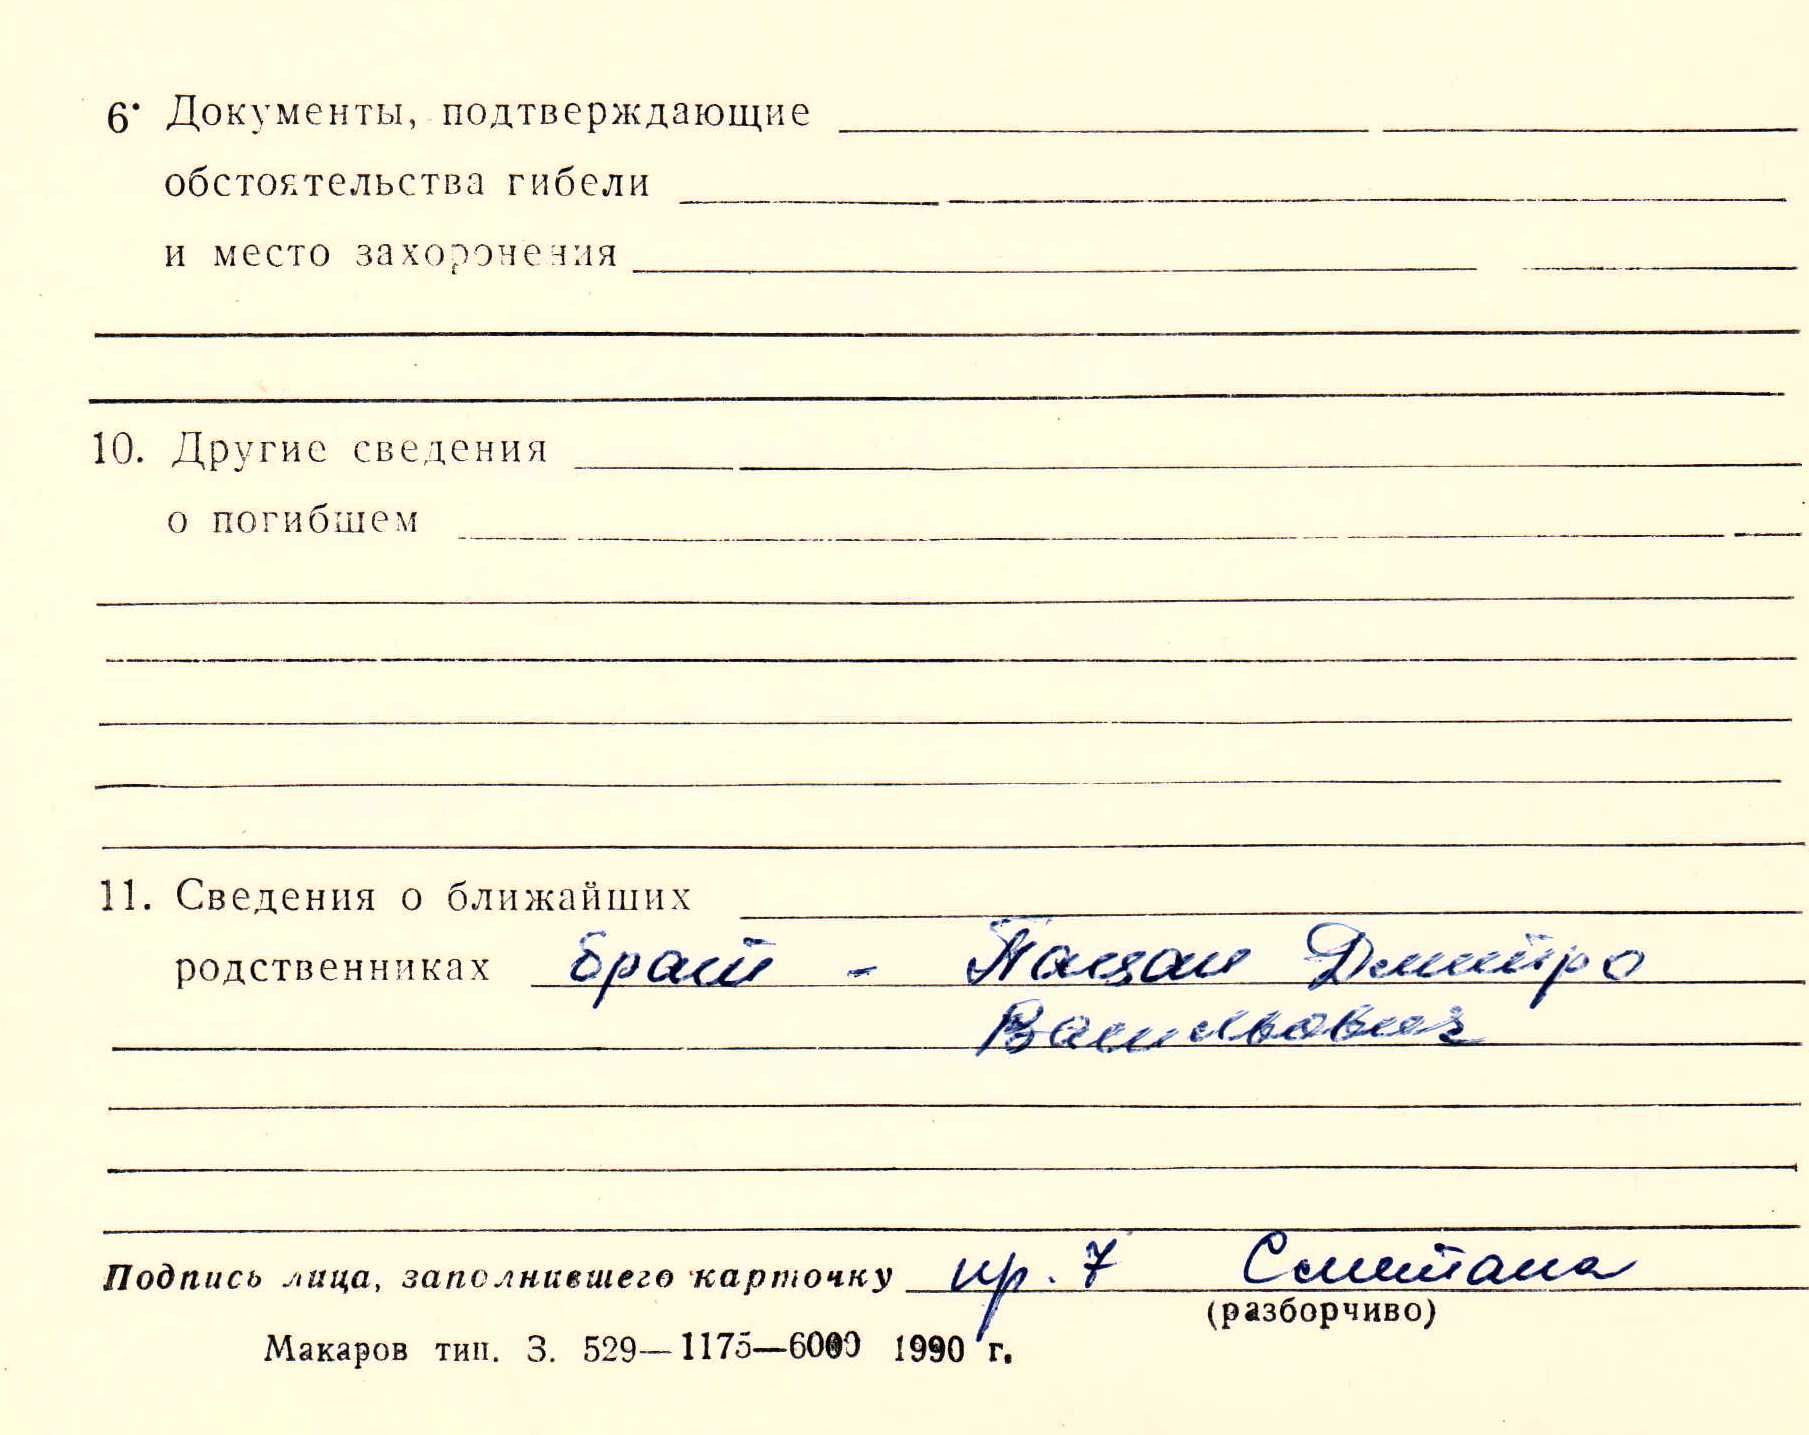 6. Документы, подтверждающие
обстоятельства гибели
и место захоронения
10. Другие сведения
о погибшем
11. Сведения о ближайших
родственниках брат - Дмитро
Васильович
Подпись лица, заполнившего карточку пр. 7 Сметана
(разборчиво)
Макаров тип. З. 529—1175—6000 1990 г.